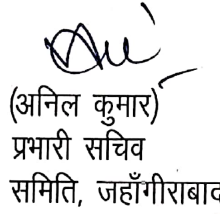 (अनिल कुमार)
प्रभारी सचिव
समिति, जहाँगीराबाद